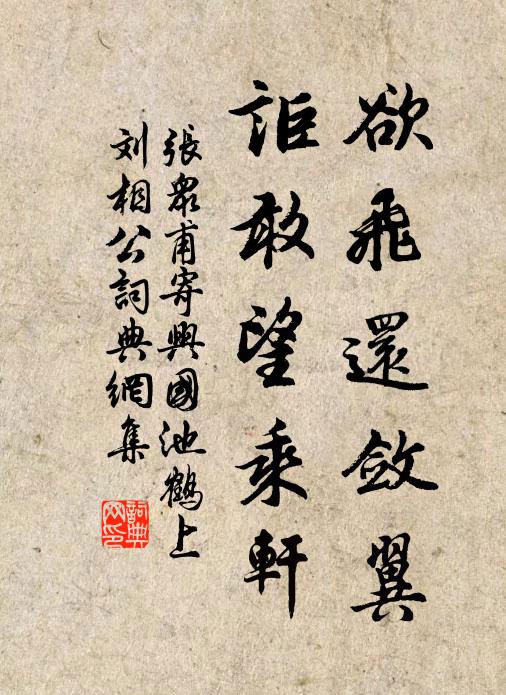 欲飛還斂翼
詎敢望乘軒
張眾甫寄興國池鶴上
刘相公詞典網集
詞典
网印